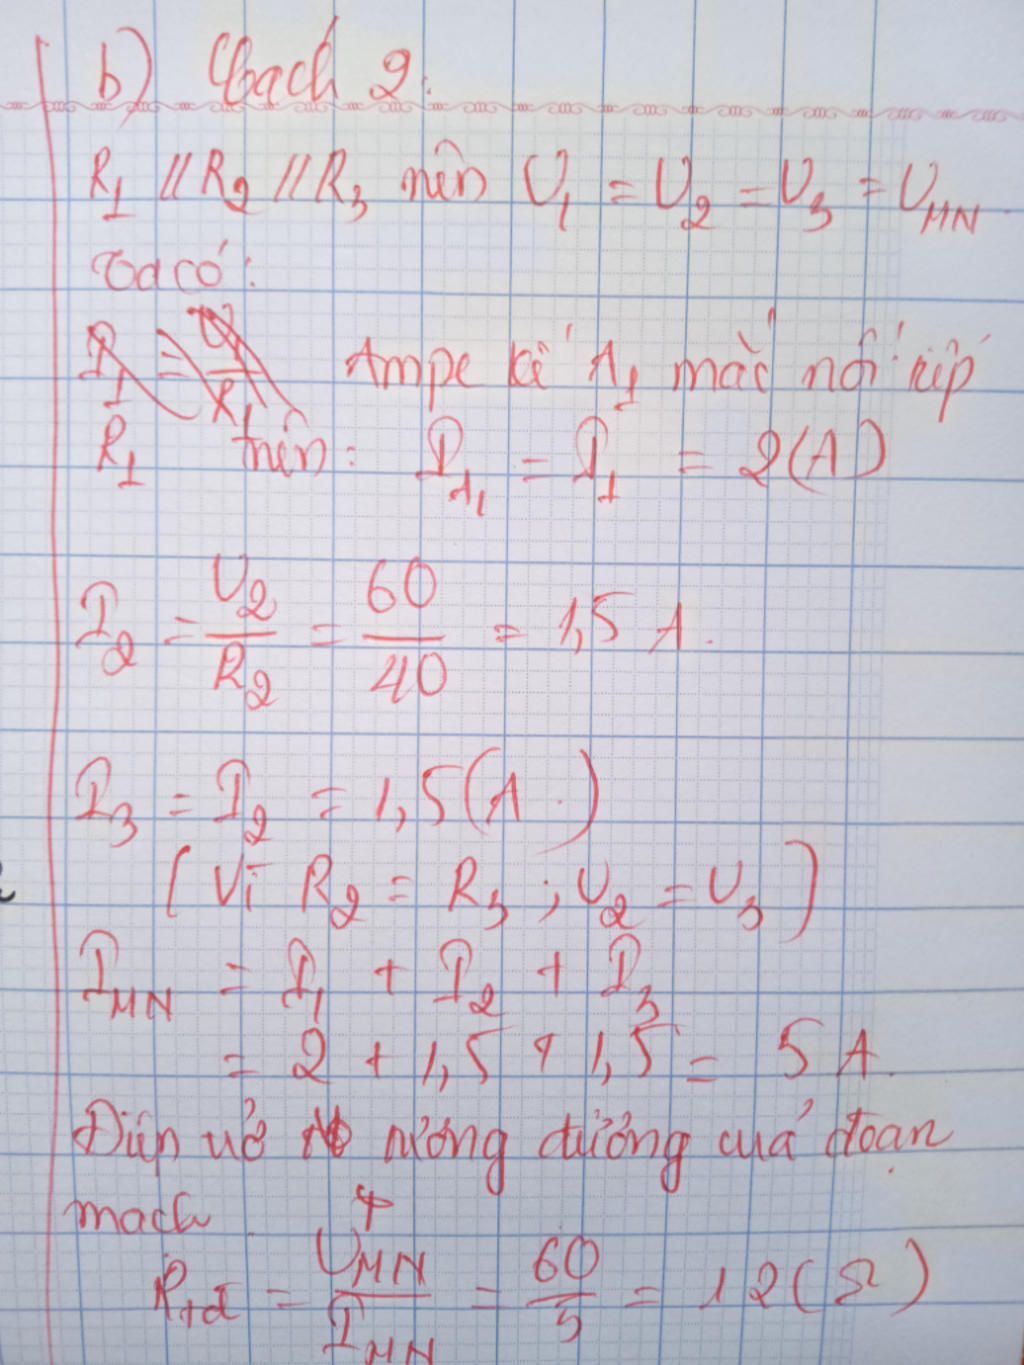 b) Cách 2:
R1 // R2 // R3 nên U1 = U2 = U3 = UMN
Ta có:
I1 = U1/R1 Ampe kế A1 mắc nối tiếp
R1 nên: IA1 = I1 = 2(A)
I2 = U2/R2 = 60/40 = 1,5 A.
I3 = I2 = 1,5(A.)
(Vì R2 = R3; U2 = U3)
IMN = I1 + I2 + I3
= 2 + 1,5 + 1,5 = 5 A.
Điện trở tương đương của đoạn
mạch
Rtđ = UMN/IMN = 60/5 = 12(Ω)